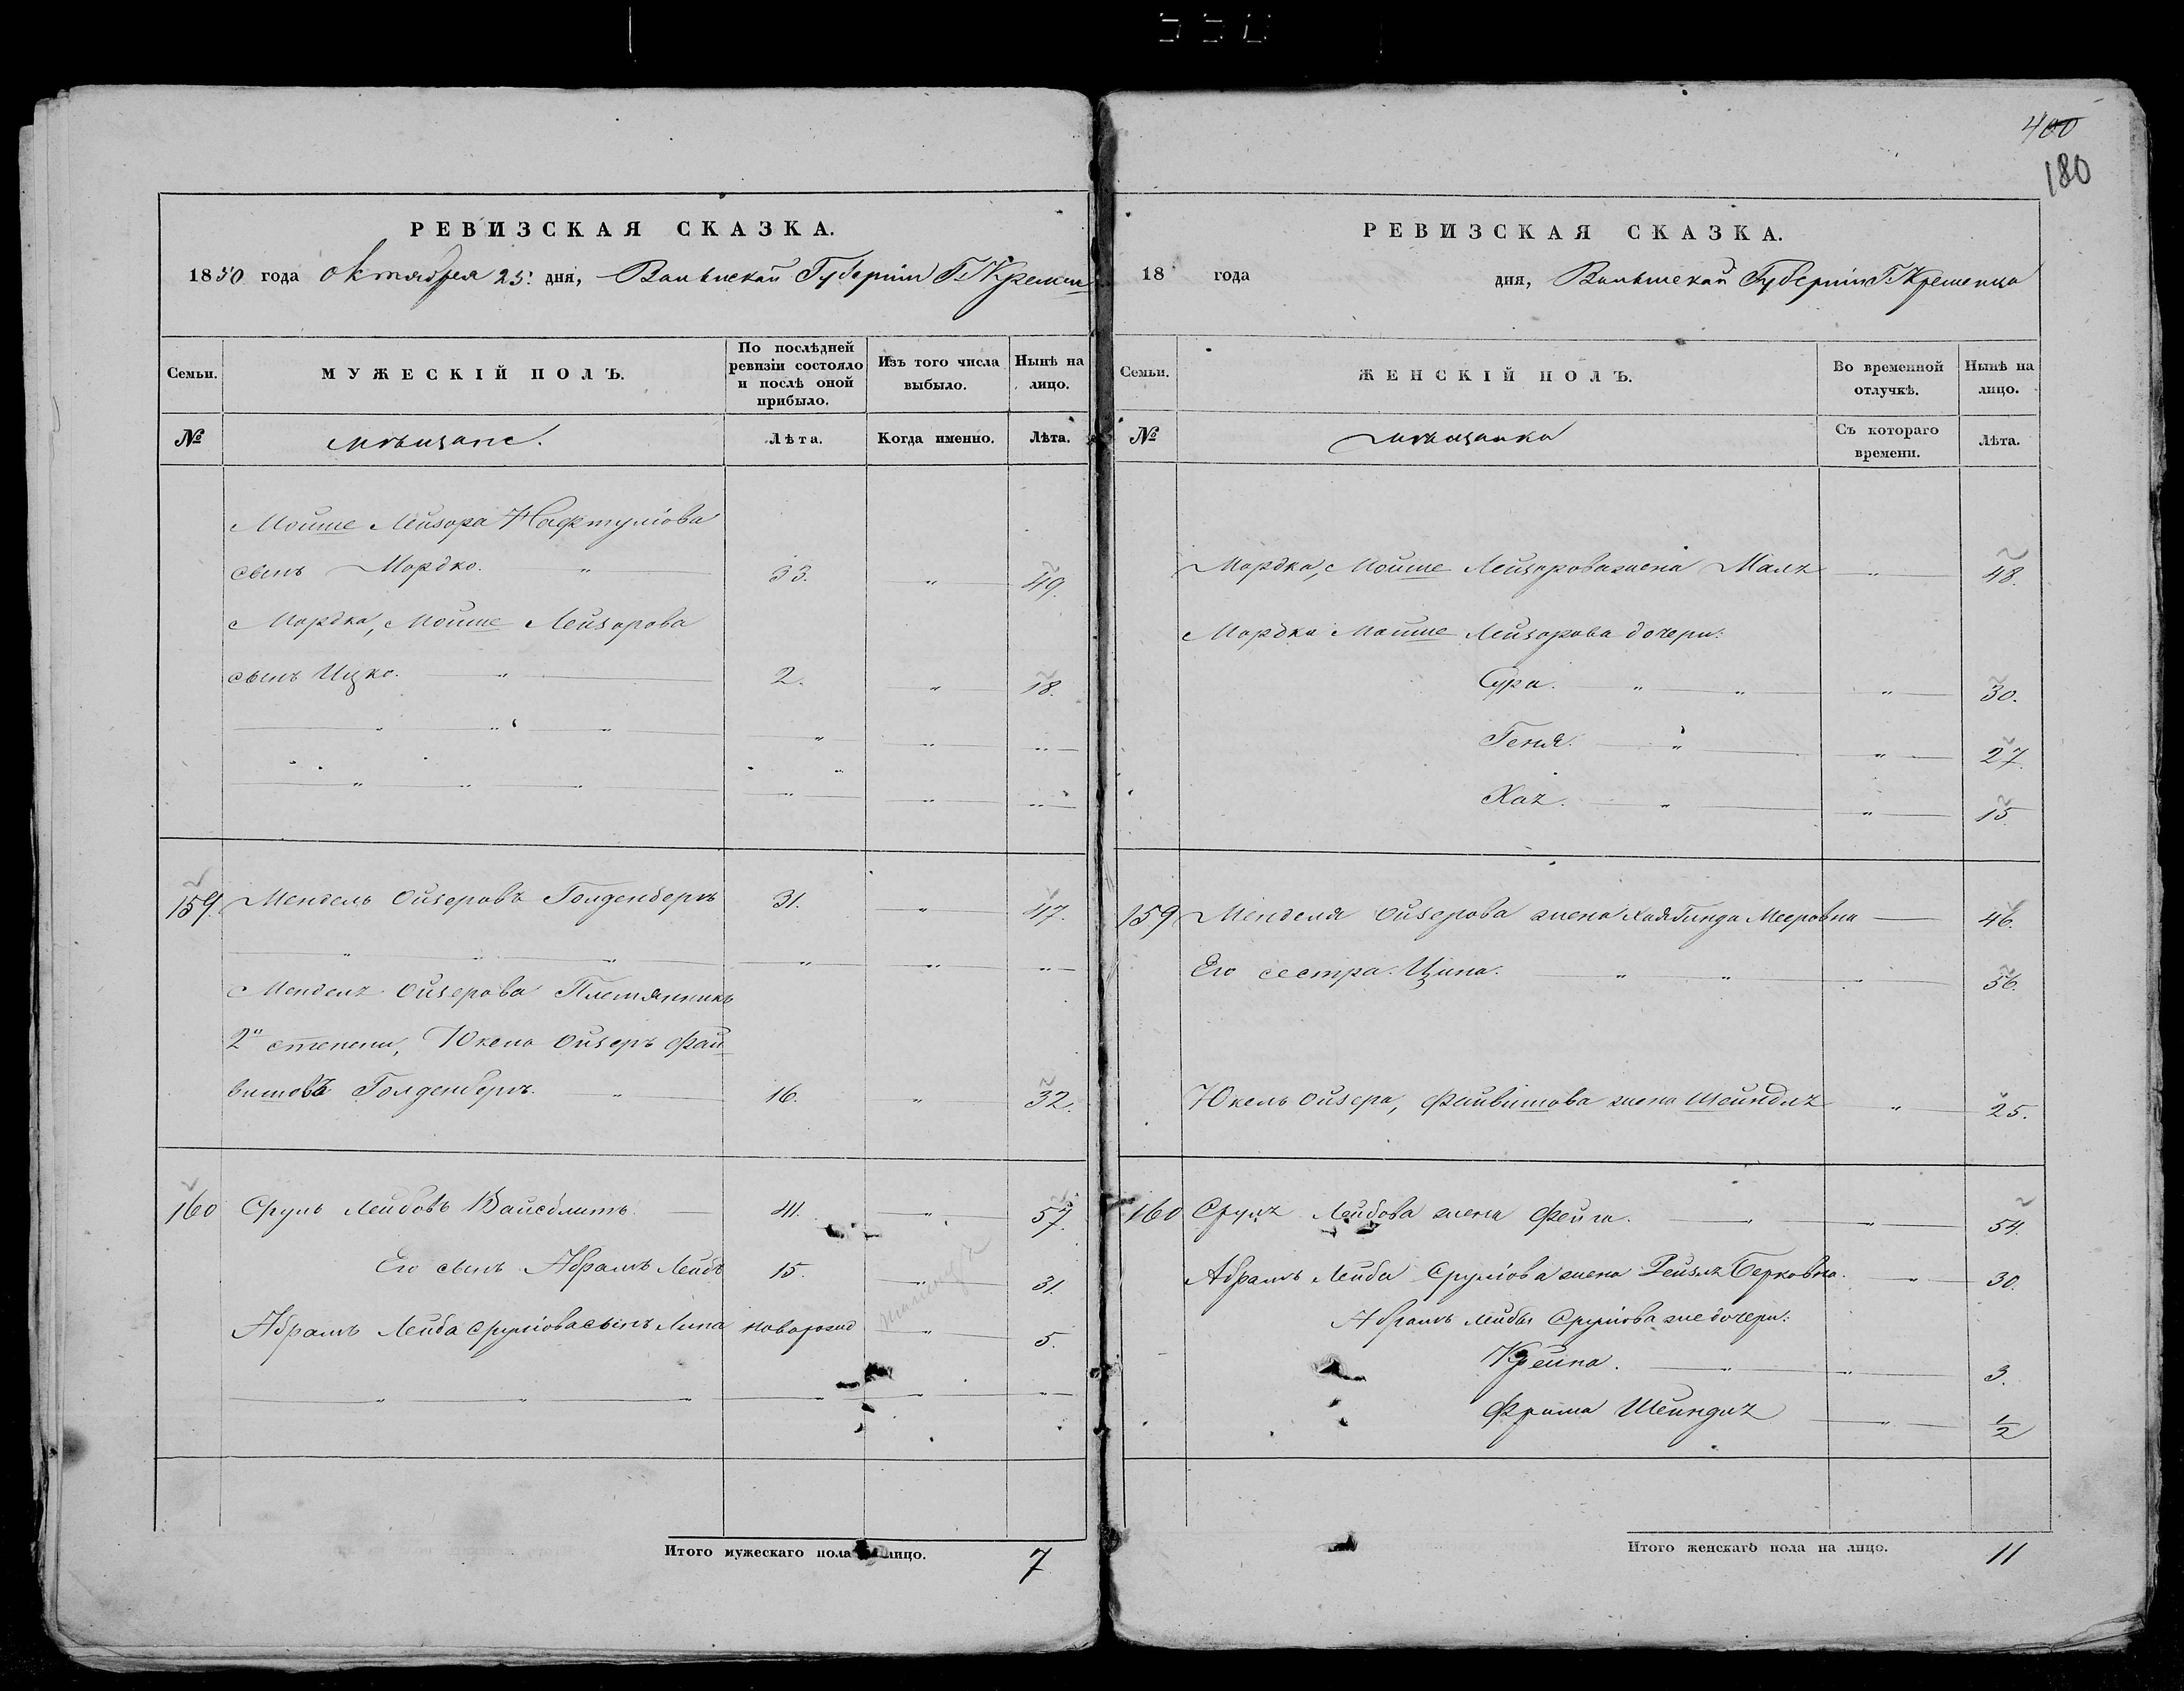 400
180
РЕВИЗСКАЯ СКАЗКА.
1850 года октября 25: дня, Волынской Губернiи Г. Кремен
Семьи. МУЖЕСКIЙ ПОЛЪ. По послѣдней ревизiи состояло и послѣ оной прибыло. Изъ того числа выбыло. Нынѣ на лицо.
№ мѣщане. Лѣта. Когда именно. Лѣта.
Мошше Лейзора Нафтулiова
сынъ Мордко. " 33. " 49.
Мордка, Мошше Лейзорова
сынъ Ицко. " 2. " 18.
159. Мендель Ойзеровъ Голденберъ 31. " 47.
Менделя Ойзерова Племянникъ
2й степени, Юкель Ойзеръ Фай-
вишовъ Голденберъ. " 16. " 32.
160 Сруль Лейбовъ Вайсблитъ. 41. " 57.
Его сынъ Абрамъ Лейбъ 15. " 31.
Абрамъ Лейба Срулiова сынъ Липа новорожд " 5.
Итого мужескаго пола на лицо. 7
РЕВИЗСКАЯ СКАЗКА.
18 года дня, Волынской Губернiи Г. Кременца
Семьи. ЖЕНСКIЙ ПОЛЪ. Во временной отлучкѣ. Нынѣ на лицо.
№ мѣщанки Съ котораго времени. Лѣта.
Мордка, Мошше Лейзорова жена Маля " 48.
Мордка Мошше Лейзорова дочери:
Сура. " " " 30.
Геня. " " 27.
Хая. " " 15.
159 Менделя Ойзерова жена Хая Гинда Мееровна 46.
Его сестра Ципа. " " " 56.
Юкель Ойзера, Файвишова жена Шейндля " 25.
160 Сруля Лейбова жена Фейга. " " 54.
Абрамъ Лейба Срулiова жена Рейзля Берковна. " 30.
Абрамъ Лейбы Срулiова же дочери:
Крейна. " " 3.
Фрима Шейндля " 1/2
Итого женскаго пола на лицо. 11